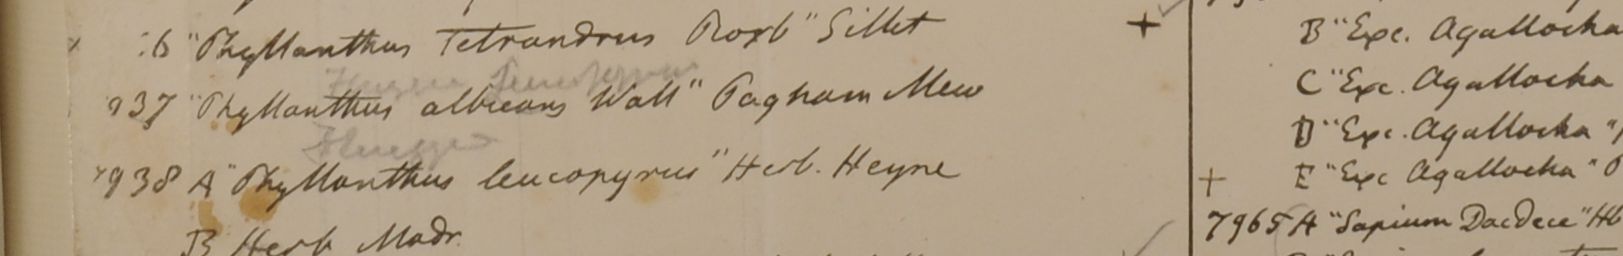 "Phyllanthus Tetrandrus Roxb" Sillet +
937 "Phyllanthus albicans Wall" Pagham Mew
Fluggea
7938 A "Phyllanthus leucopyrus" Herb. Heyne
B Herb Madr.
B "Exc. Agallocha
C "Exc. Agallocha
D "Exc. Agallocha "
+ E "Exc Agallocha"
7965 A "Sapium Dacdece" Hb